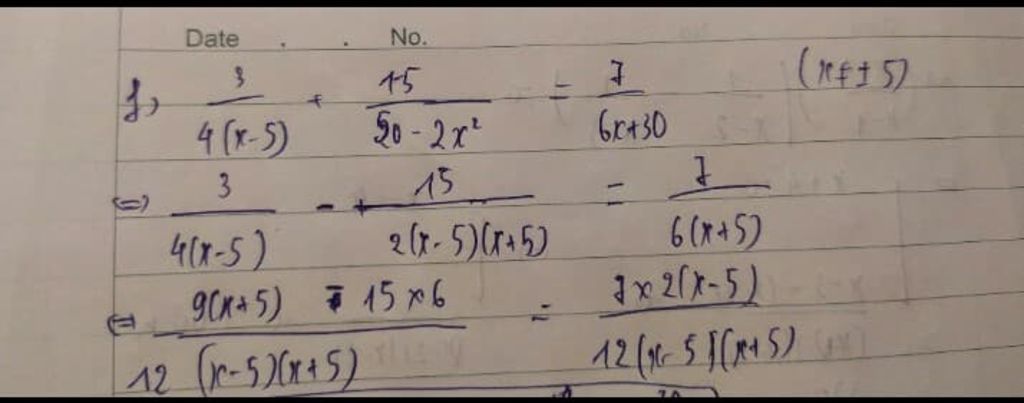 Date . . No.
f, 3/(4(x-5)) + 15/(50 - 2x²) = 7/(6x+30) (x ≠ ±5)
⇔ 3/(4(x-5)) - 15/(2(x-5)(x+5)) = 7/(6(x+5))
⇔ (9(x+5) - 15×6)/(12(x-5)(x+5)) = (7×2(x-5))/(12(x-5)(x+5))